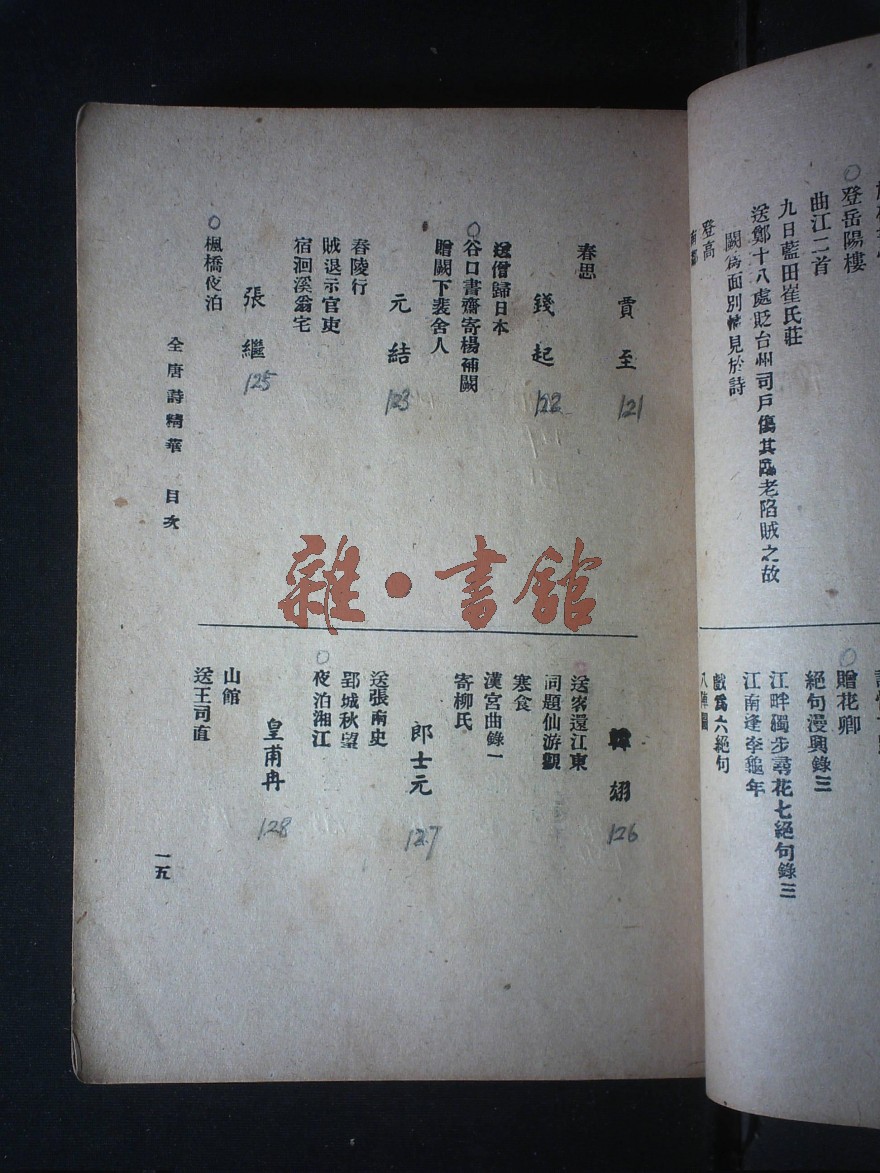 ○登岳陽樓
曲江二首
九日藍田崔氏莊
送鄭十八處貶台州司戶傷其臨老陷賊之故
闕為面別情見於詩
登高
○贈花卿
絕句漫興錄三
江畔獨步尋花七絕句錄三
江南逢李龜年
戲為六絕句
八陣圖
賈至 121
春思
錢起 122
送僧歸日本
○谷口書齋寄楊補闕
贈闕下裴舍人
元結 123
舂陵行
賊退示官吏
宿洄溪翁宅
張繼 125
○楓橋夜泊
韓翃 126
送客還江東
同題仙游觀
寒食
漢宮曲錄一
寄柳氏
郎士元 127
送張南史
郢城秋望
○夜泊湘江
皇甫冉 128
山館
送王司直
全唐詩精華 目次
一五
雜·書館